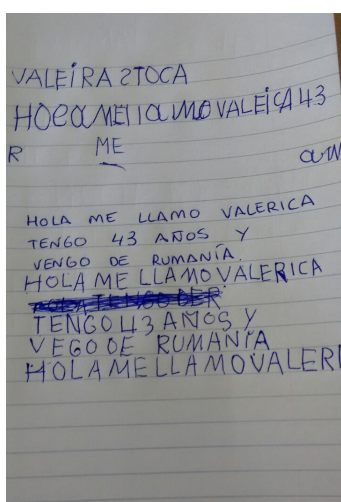 VALEÍRA STOCA
HOLAMELLAMO VALEÍCA 43
R ME am
HOLA ME LLAMO VALERICA
TENGO 43 AÑOS Y
VENGO DE RUMANÍA.
HOLA ME LLAMO VALERICA
TENGO 43 AÑOS Y
VEGO DE RUMANÍA
HOLAMELLAMOVALERI